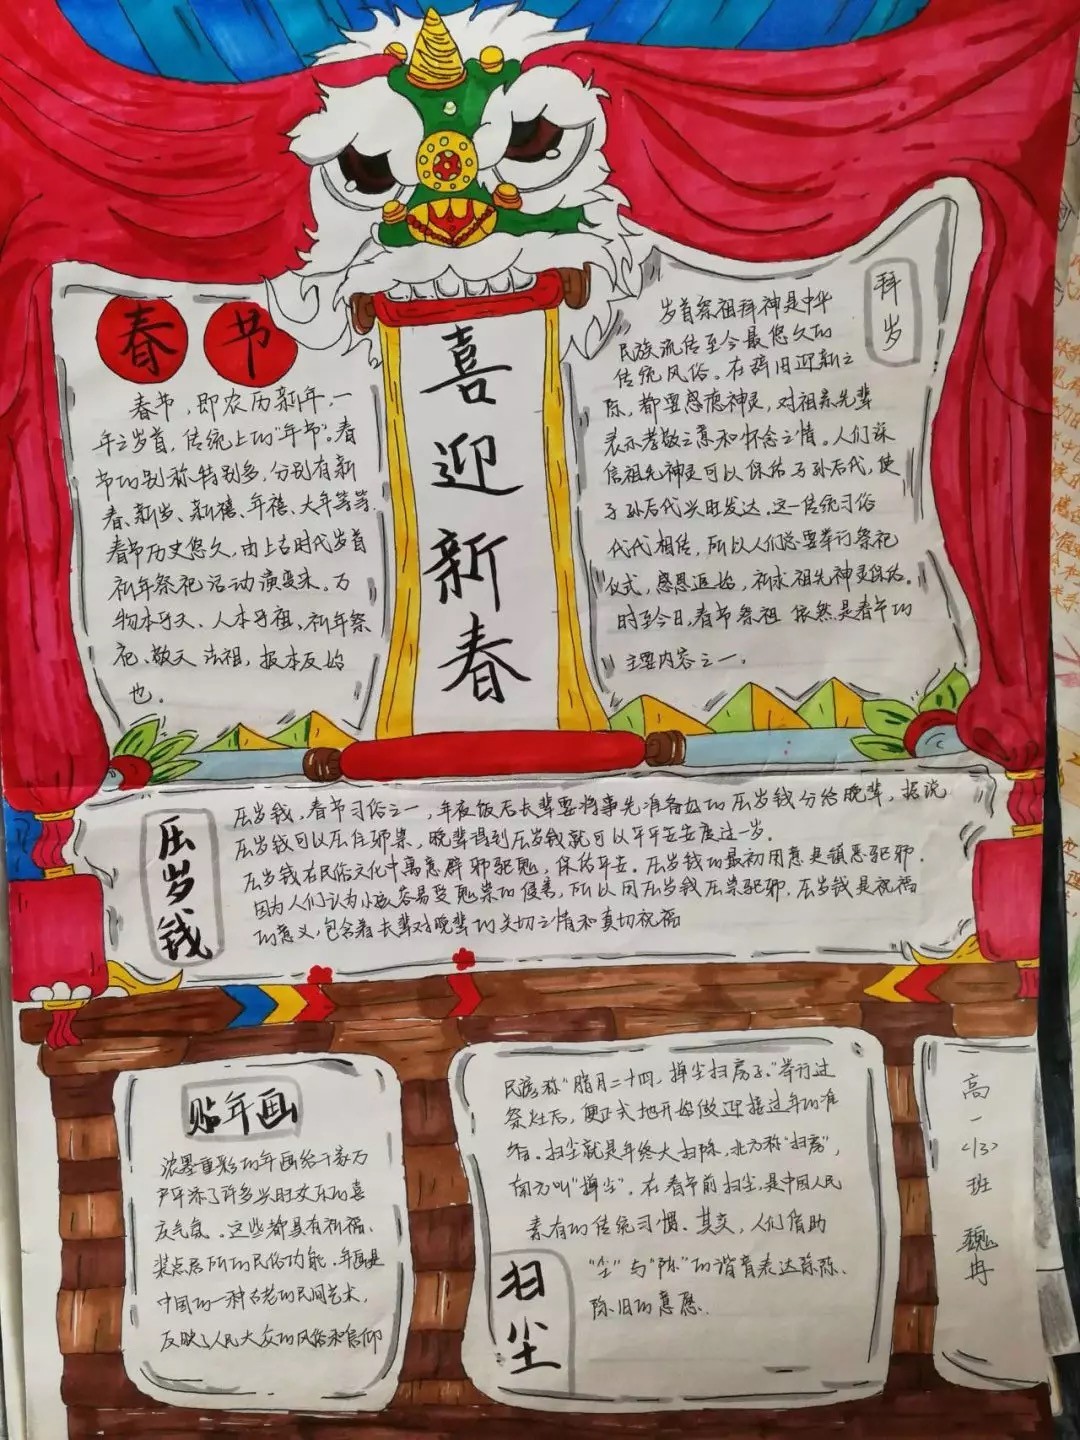 春节
春节，即农历新年，一
年之岁首，传统上的"年节"。春
节的别称特别多，分别有新
春、新岁、新禧、年禧、大年等等
春节历史悠久，由上古时代岁首
祈年祭祀活动演变来。万
物本乎天、人本乎祖、祈年祭
祀、敬天法祖，报本反始
也。
喜迎新春
拜岁
岁首祭祖拜神是中华
民族流传至今最悠久的
传统风俗。在辞旧迎新之
际，都要感德神灵，对祖系先辈
表示孝敬之意和怀念之情。人们深
信祖先神灵可以保佑子孙后代，使
子孙后代兴旺发达。这一传统习俗
代代相传，所以人们总要举行祭祀
仪式，感恩返始，祈求祖先神灵保佑。
时至今日，春节祭祖依然是春节的
主要内容之一。
压岁钱
压岁钱，春节习俗之一，年夜饭后长辈要将事先准备好的压岁钱分给晚辈，据说
压岁钱可以压住邪祟，晚辈得到压岁钱就可以平平安安度过一岁。
压岁钱在民俗文化中寓意辟邪驱鬼，保佑平安。压岁钱的最初用意是镇恶驱邪。
因为人们认为小孩容易受鬼祟的侵害，所以用压岁钱压祟驱邪，压岁钱是祝福
的意义，包含着长辈对晚辈的关切之情和真切祝福
贴年画
浓墨重彩的年画给千家万
户平添了许多兴旺欢乐的喜
庆气氛。这些都具有祈福、
装点居所的民俗功能。年画是
中国的一种古老的民间艺术，
反映了人民大众的风俗和信仰
民谚称"腊月二十四，掸尘扫房子。"举行过
祭灶后，便正式地开始做迎接过年的准
备。扫尘就是年终大扫除，北方称"扫房"，
南方叫"掸尘"。在春节前扫尘，是中国人民
素有的传统习惯。其实，人们借助
"尘"与"陈"的谐音表达除陈、
除旧的意愿。
扫尘
高一〈13〉班 魏冉